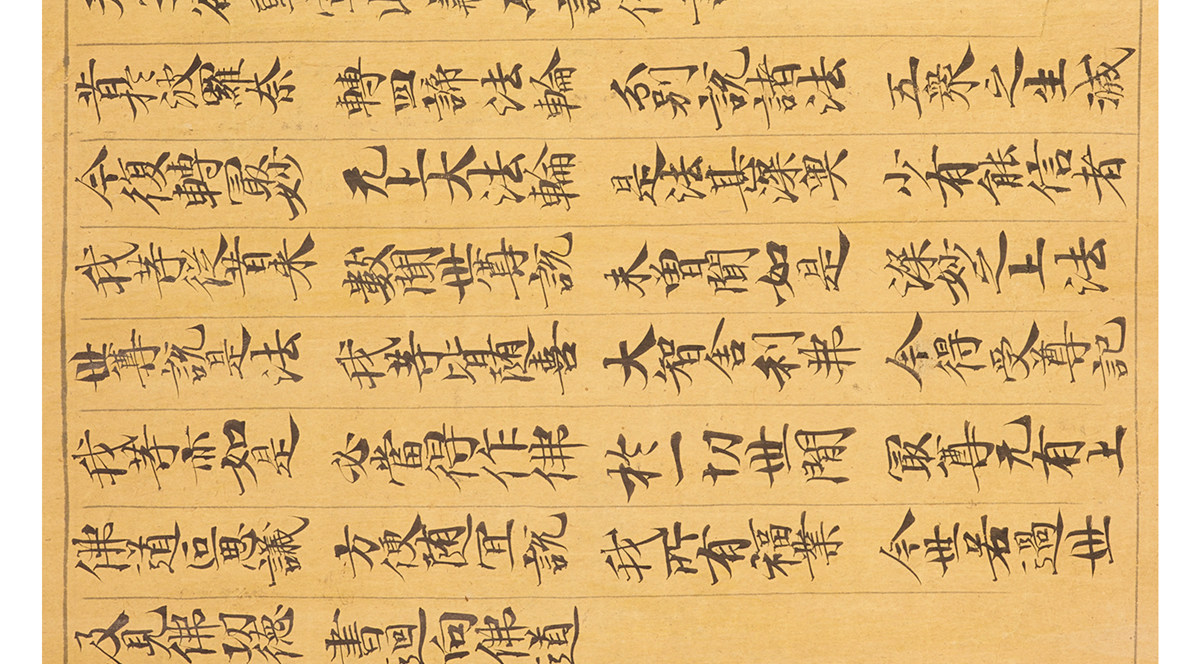 昔於波羅奈 轉四諦法輪 分別說諸法 五眾之生滅
今復轉最妙 无上大法輪 是法甚深奧 少有能信者
我等從昔來 數聞世尊說 未曾聞如是 深妙之上法
世尊說是法 我等皆隨喜 大智舍利弗 今得受尊記
我等亦如是 必當得作佛 於一切世間 最尊无有上
佛道叵思議 方便隨宜說 我所有福業 今世若過世
及見佛功德 盡迴向佛道